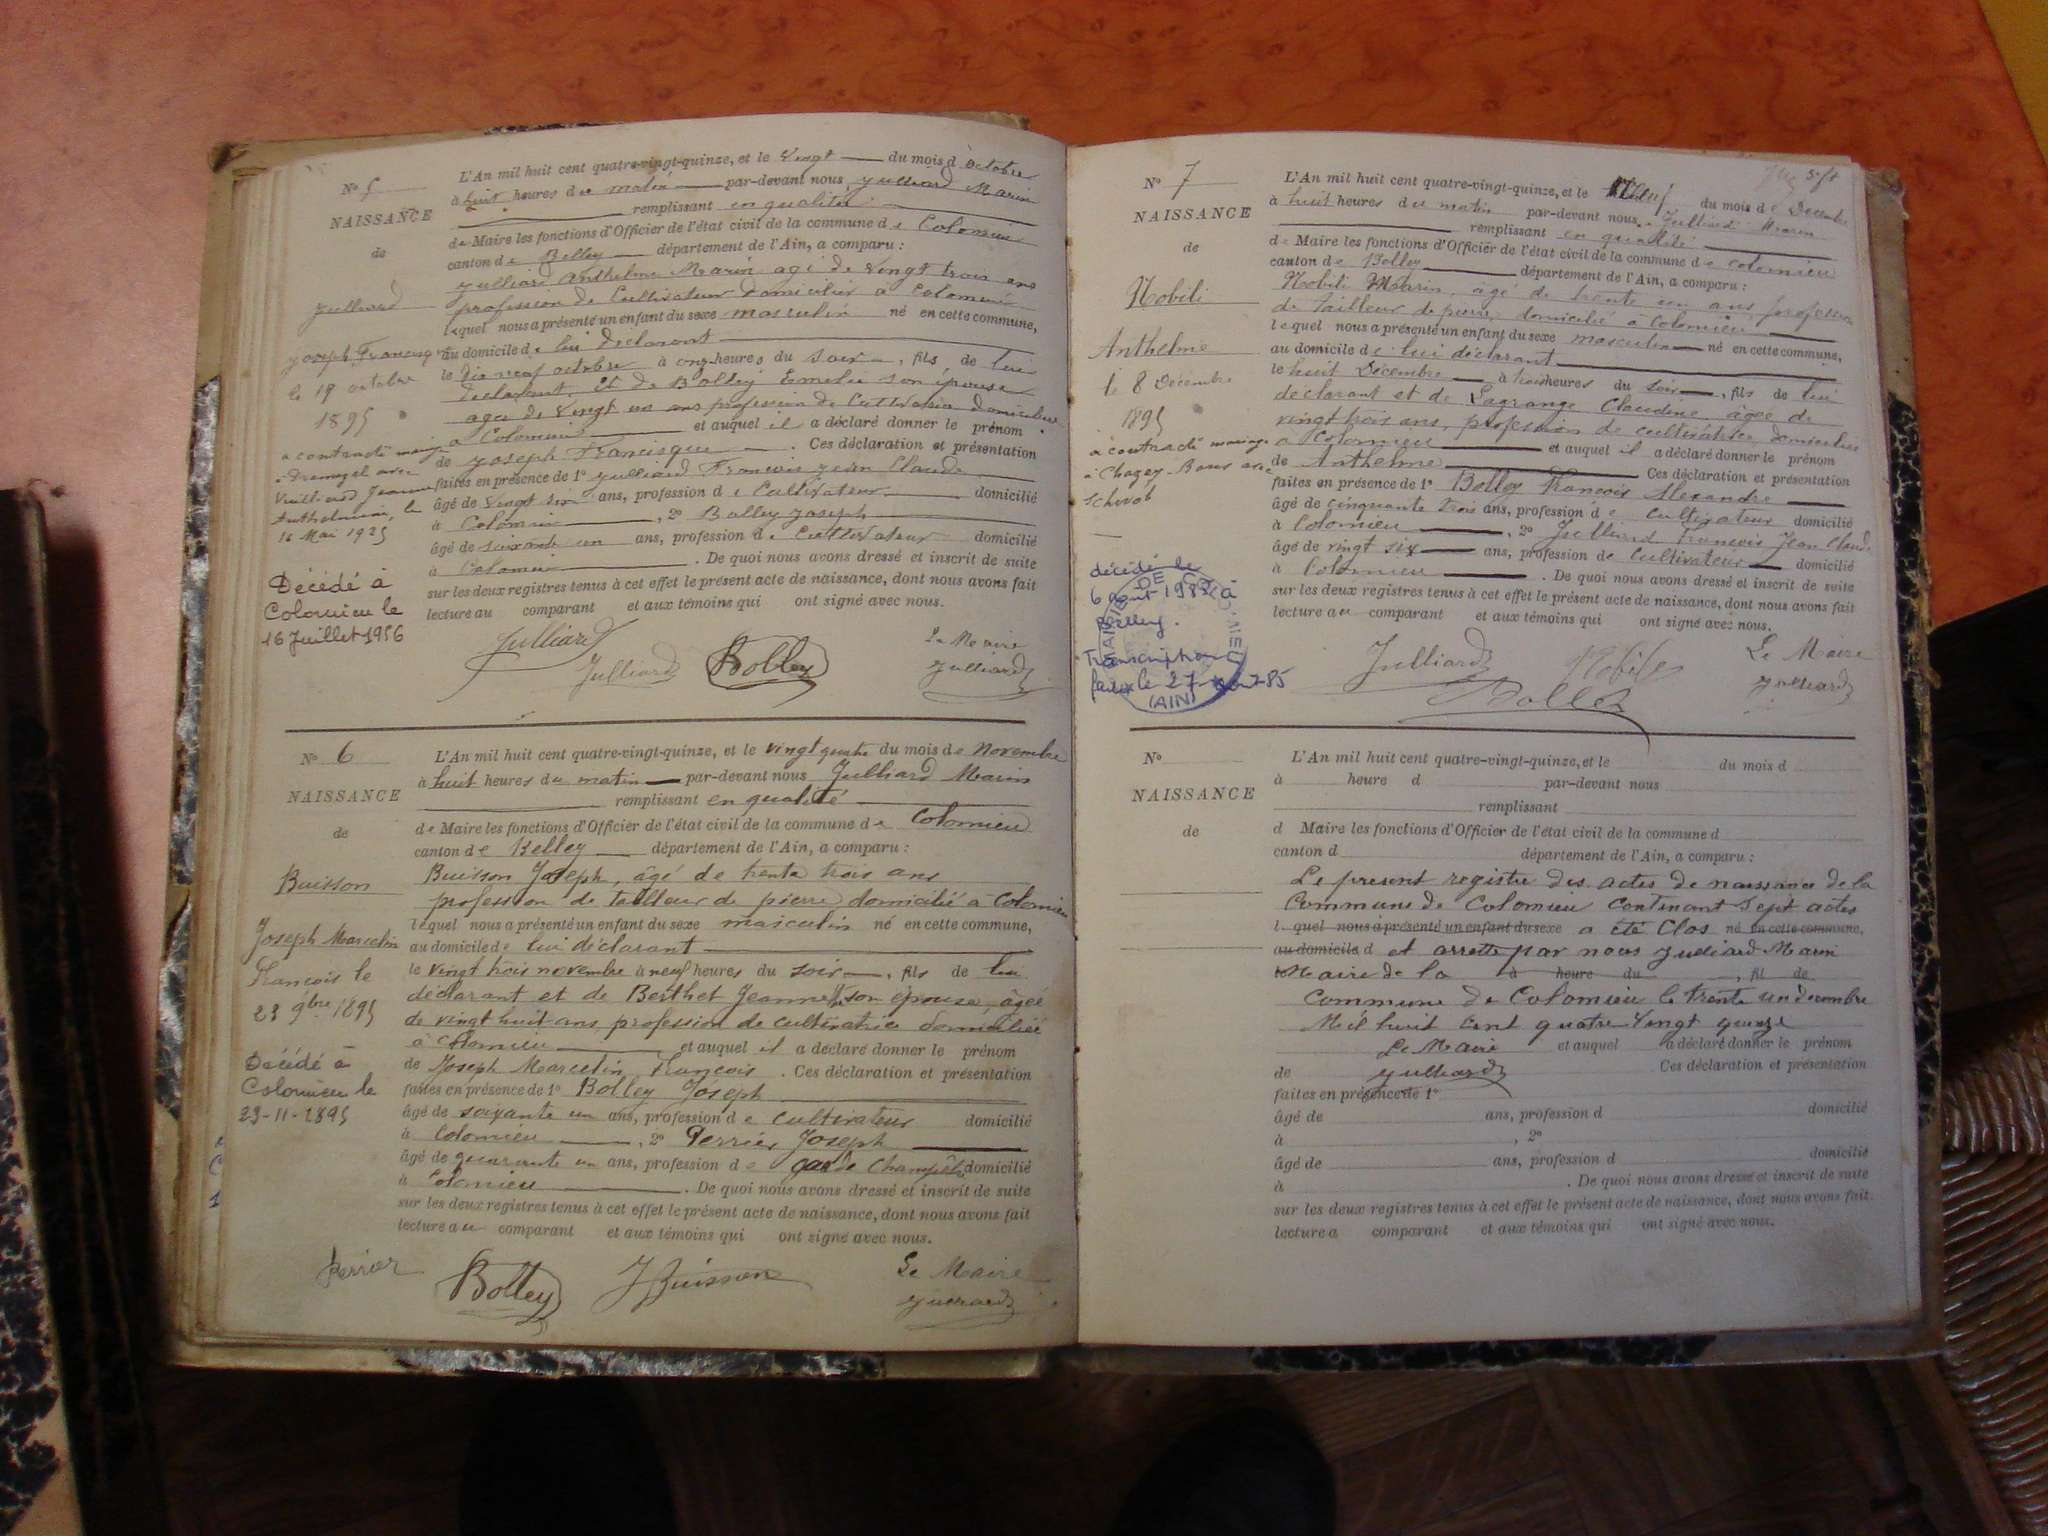 No 5
NAISSANCE
de
Julliard
Joseph Francisque
le 19 octobre
1895
a contracté mariage
à avec
Vuilliard Jeanne
Anthelmine, le
16 Mai 1925
Décédé à
Colomieu le
16 Juillet 1956
L'An mil huit cent quatre-vingt-quinze, et le vingt du mois d'octobre
à huit heures du matin par-devant nous Julliard Marin
remplissant en qualité
de Maire les fonctions d'Officier de l'état civil de la commune de Colomieu
canton de Belley département de l'Ain, a comparu :
Julliard Anthelme Marin agé de vingt trois ans
profession de Cultivateur domicilié à Colomieu
lequel nous a présenté un enfant du sexe masculin né en cette commune,
au domicile de lui déclarant
le dix neuf octobre à onze heures du soir, fils de lui
déclarant et de Bolley Emelie son épouse
agée de vingt un ans profession de Cultivatrice domiciliée
à Colomieu et auquel il a déclaré donner le prénom
de Joseph Francisque. Ces déclaration et présentation
faites en présence de 1° Julliard François Jean Claude
âgé de vingt six ans, profession de Cultivateur domicilié
à Colomieu, 2° Bolley Joseph
âgé de soixante un ans, profession de Cultivateur domicilié
à Colomieu. De quoi nous avons dressé et inscrit de suite
sur les deux registres tenus à cet effet le présent acte de naissance, dont nous avons fait
lecture au comparant et aux témoins qui ont signé avec nous.
Julliard Julliard Bolley Le Maire
Julliard
No 6
NAISSANCE
de
Buisson
Joseph Marcelin
François le
23 9bre 1895
Décédé à
Colomieu le
23-11-1895
L'An mil huit cent quatre-vingt-quinze, et le vingt quatre du mois de Novembre
à huit heures du matin par-devant nous Julliard Marin
remplissant en qualité
de Maire les fonctions d'Officier de l'état civil de la commune de Colomieu
canton de Belley département de l'Ain, a comparu :
Buisson Joseph, âgé de trente trois ans
profession de tailleur de pierre domicilié à Colomieu
lequel nous a présenté un enfant du sexe masculin né en cette commune,
au domicile de lui déclarant
le vingt trois novembre à neuf heures du soir, fils de lui
déclarant et de Berthet Jeannette son épouse, âgée
de vingt huit ans, profession de cultivatrice domiciliée
à Colomieu et auquel il a déclaré donner le prénom
de Joseph Marcelin François. Ces déclaration et présentation
faites en présence de 1° Bolley Joseph
âgé de soixante un ans, profession de cultivateur domicilié
à Colomieu, 2° Perrier Joseph
âgé de quarante un ans, profession de garde Champêtre domicilié
à Colomieu. De quoi nous avons dressé et inscrit de suite
sur les deux registres tenus à cet effet le présent acte de naissance, dont nous avons fait
lecture au comparant et aux témoins qui ont signé avec nous.
Perrier Bolley J Buisson Le Maire
Julliard
sept
No 7
NAISSANCE
de
Nobili
Anthelme
le 8 Décembre
1895
a contracté mariage
à Chazey-Bons avec
décédé le
6 août 1985 à
Belley.
Transcription
faite le 27
MAIRIE DE COLOMIEU
(AIN)
L'An mil huit cent quatre-vingt-quinze, et le neuf du mois de Décembre
à huit heures du matin par-devant nous Julliard Marin
remplissant en qualité
de Maire les fonctions d'Officier de l'état civil de la commune de Colomieu
canton de Belley département de l'Ain, a comparu :
Nobili Marin, âgé de trente un ans, profession
de tailleur de pierre domicilié à Colomieu
lequel nous a présenté un enfant du sexe masculin né en cette commune,
au domicile de lui déclarant
le huit Décembre à trois heures du soir, fils de lui
déclarant et de Lagrange Claudine, âgée de
vingt trois ans, profession de cultivatrice domiciliée
à Colomieu et auquel il a déclaré donner le prénom
de Anthelme Ces déclaration et présentation
faites en présence de 1° Bolley François Alexandre
âgé de cinquante trois ans, profession de cultivateur domicilié
à Colomieu, 2° Julliard François Jean Claude
âgé de vingt six ans, profession de cultivateur domicilié
à Colomieu. De quoi nous avons dressé et inscrit de suite
sur les deux registres tenus à cet effet le présent acte de naissance, dont nous avons fait
lecture au comparant et aux témoins qui ont signé avec nous.
Julliard Nobili Le Maire
Bolley Julliard
No
NAISSANCE
de
L'An mil huit cent quatre-vingt-quinze, et le du mois d
à heure d par-devant nous
remplissant
d Maire les fonctions d'Officier de l'état civil de la commune d
canton d département de l'Ain, a comparu :
Le present registre des actes de naissance de la
Commune de Colomieu contenant sept actes
l quel nous a présenté un enfant du sexe a été Clos né en cette commune,
au domicile d et arretté par nous Julliard Marin
le Maire de la à heure du , fil de
commune de Colomieu le trente un décembre
Mil huit cent quatre vingt quinze
Le Maire et auquel a déclaré donner le prénom
de Julliard Ces déclaration et présentation
faites en présence de 1°
âgé de ans, profession d domicilié
à , 2°
âgé de ans, profession d domicilié
à . De quoi nous avons dressé et inscrit de suite
sur les deux registres tenus à cet effet le présent acte de naissance, dont nous avons fait
lecture a comparant et aux témoins qui ont signé avec nous.